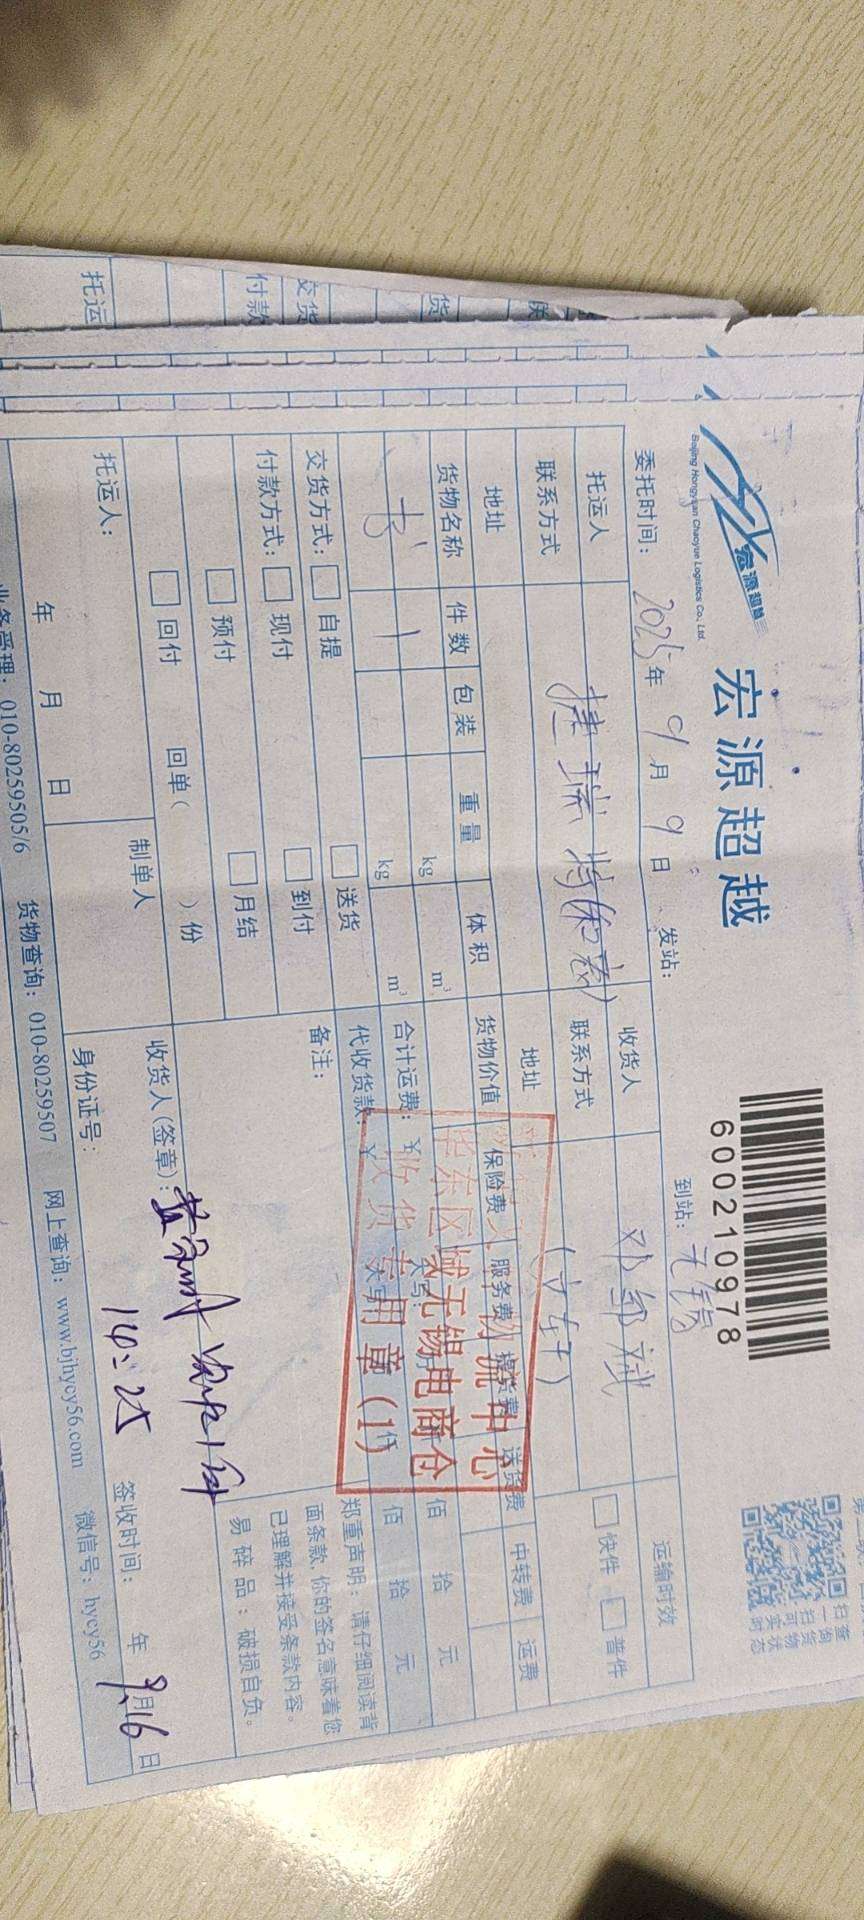 宏源超越
宏源超越
Beijing Hongyuan Chaoyue Logistics Co., Ltd.
600210978
扫一扫
查询货物
可实时状态
委托时间: 2025年9月9日 发站: 到站: 无锡
托运人 捷瑞特 收货人 运输时效
联系方式 联系方式 快件 普件
地址 地址
货物名称 件数 包装 重量 体积 货物价值 保险费 服务费 提货费 送货费 中转费 运费
书 1 kg m³
kg m³ 合计运费: ¥ 大写: 仟 佰 拾 元
交货方式: 自提 送货 代收货款: ¥ 大写: 仟 佰 拾 元
付款方式: 现付 到付 备注:
预付 月结
回付 回单( )份
郑重声明:请仔细阅读背
面条款,你的签名意味着您
已理解并接受条款内容。
易碎品:破损自负。
物流中心
华东区域无锡电商仓
收货专用章(1)
托运人: 制单人 收货人(签章):
14:25
年 月 日 身份证号: 签收时间: 年9月16日
业务受理: 010-80259505/6 货物查询: 010-80259507 网上查询: www.bjhycy56.com 微信号: hycy56
托运
付款
交货
货
联